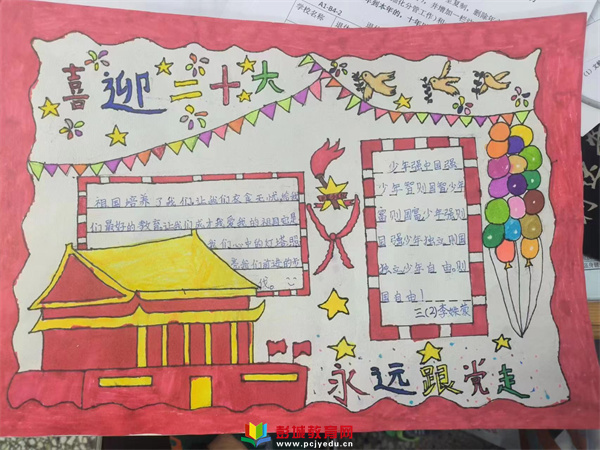 学校名称
A1-B4-2
喜迎二十大
祖国培养了我们,让我们衣食无忧,给我
们最好的教育,让我们成才我爱我的祖国
我们心中的灯塔照
我们前进的步
伐。
少年强中国强
少年智则国智少年
富则国富少年强则
国强少年独立则国
独立少年自由则
国自由!
三(2)李
永远跟党走
彭城教育网
www.pcjyedu.cn